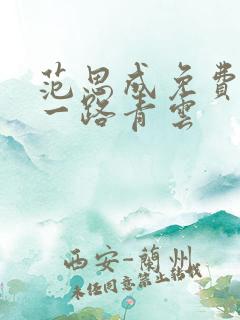 范思成免费
一路青雲
西安-蘭州
未经同意禁止转载